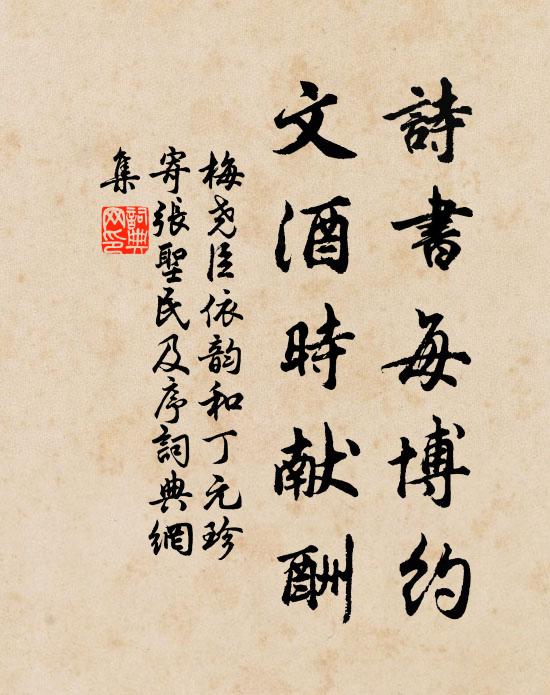 詩書每博約
文酒時献酬
梅尧臣依韵和丁元珍
寄張聖民及序詞典網
集
詞典
网印